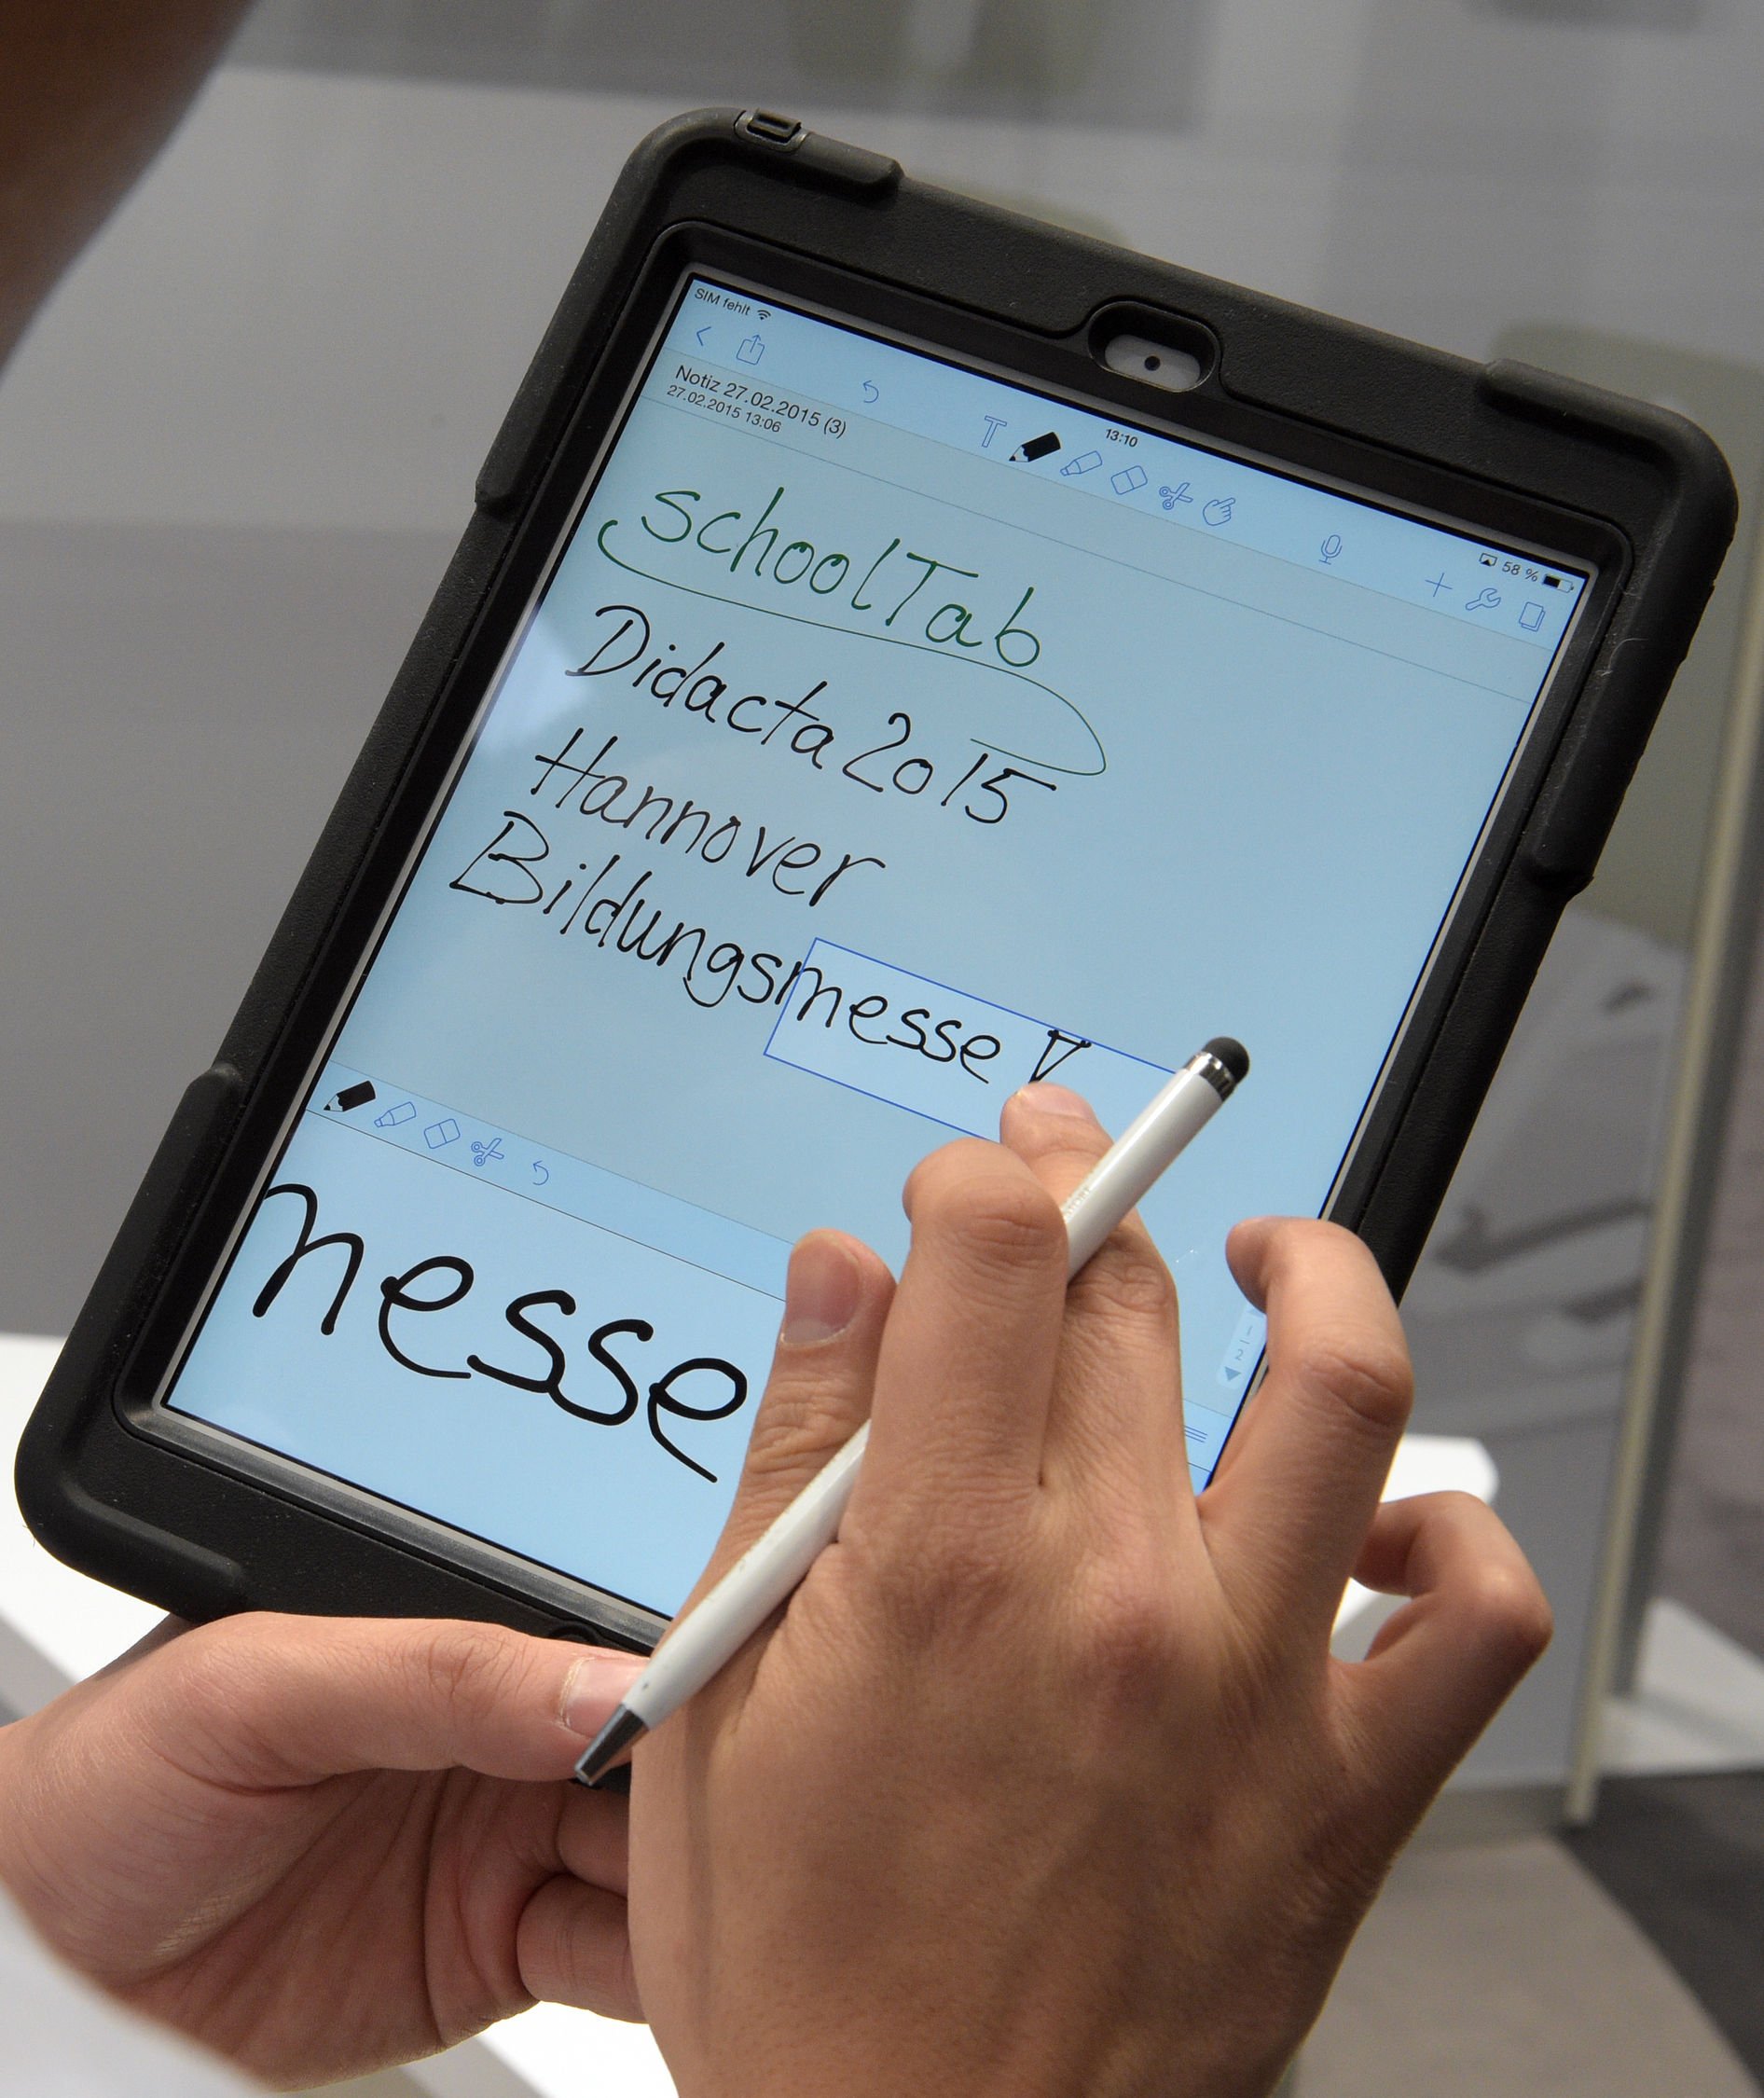 SIM fehlt
13:10
58 %
Notiz 27.02.2015 (3)
27.02.2015 13:06
T
schoolTab
Didacta 2015
Hannover
Bildungsmesse
messe